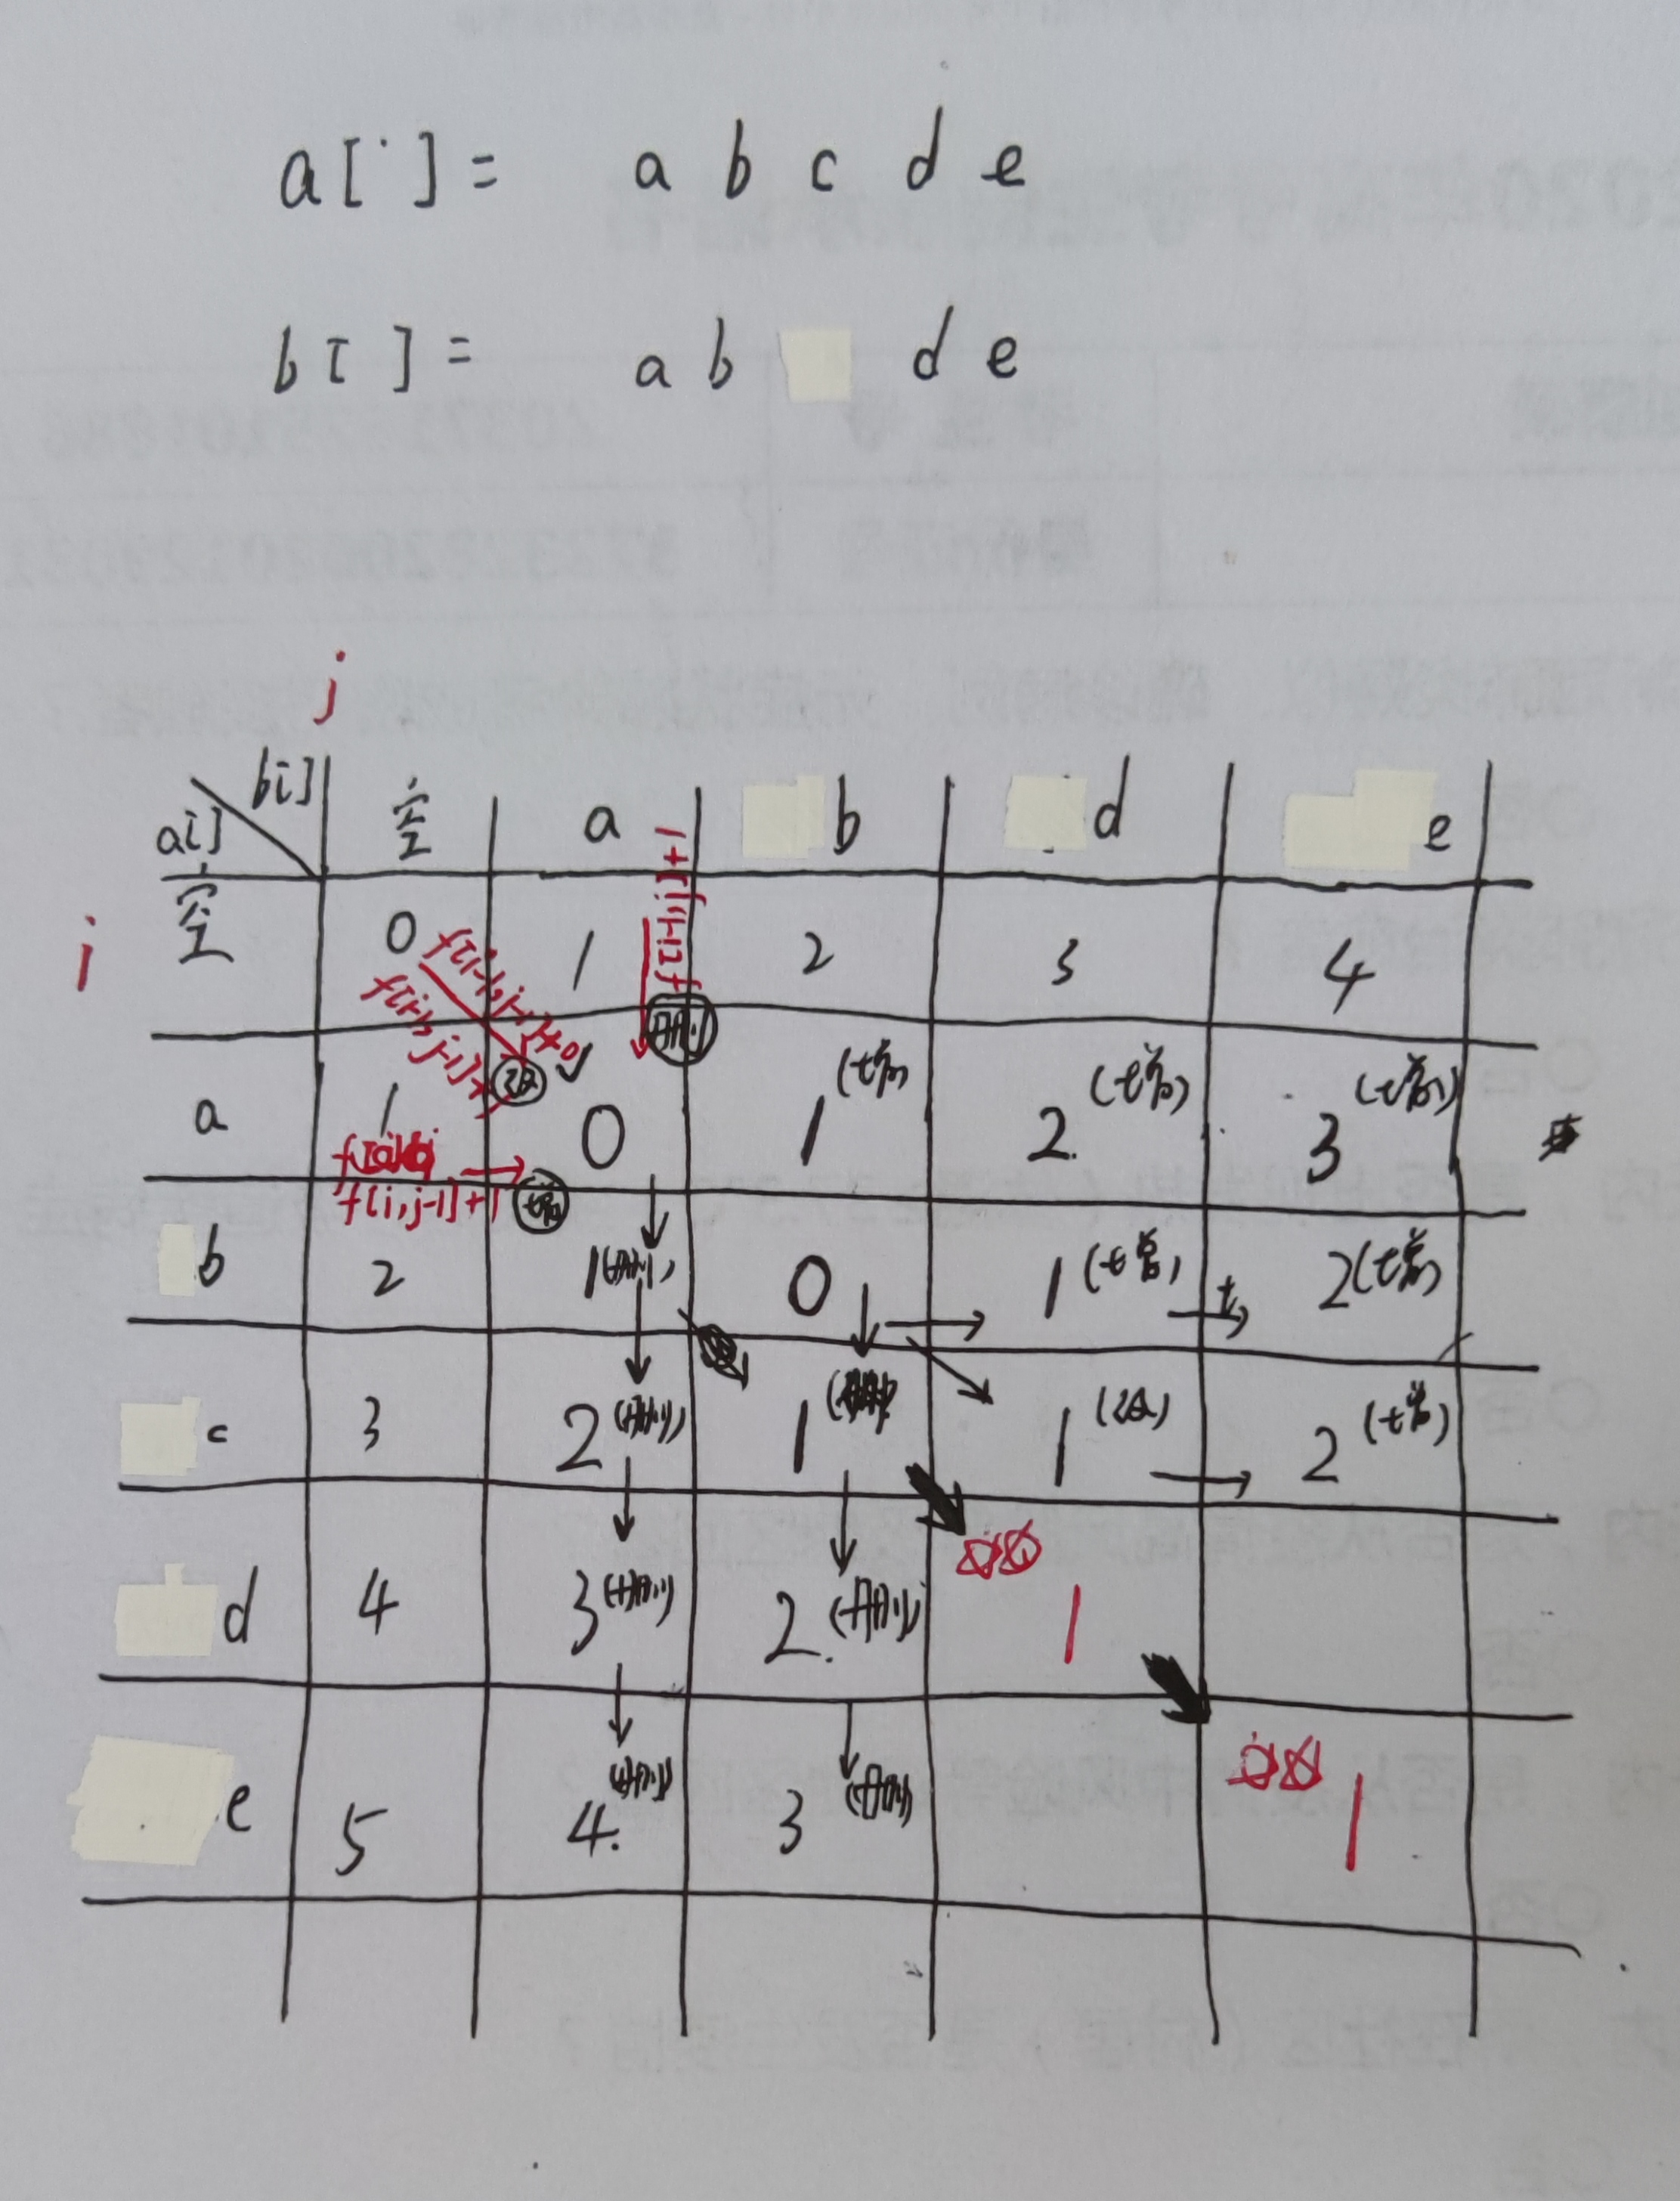 a[ ] = a b c d e
b[ ] = a b d e
j
b[] 空 a b d e
a[]
i 空 0 1 2 3 4
f[i-1,j]+1
f[i-1,j-1]+0
f[i-1,j-1]+1
删
改 ✓
a 1 0 1(增) 2(增) 3(增)
f[i,j-1]+1 增
b 2 1(删) 0 1(增) 2(增)
c 3 2(删) 1(删) 1(改) 2(增)
d 4 3(删) 2(删) 1
e 5 4(删) 3(删) 1